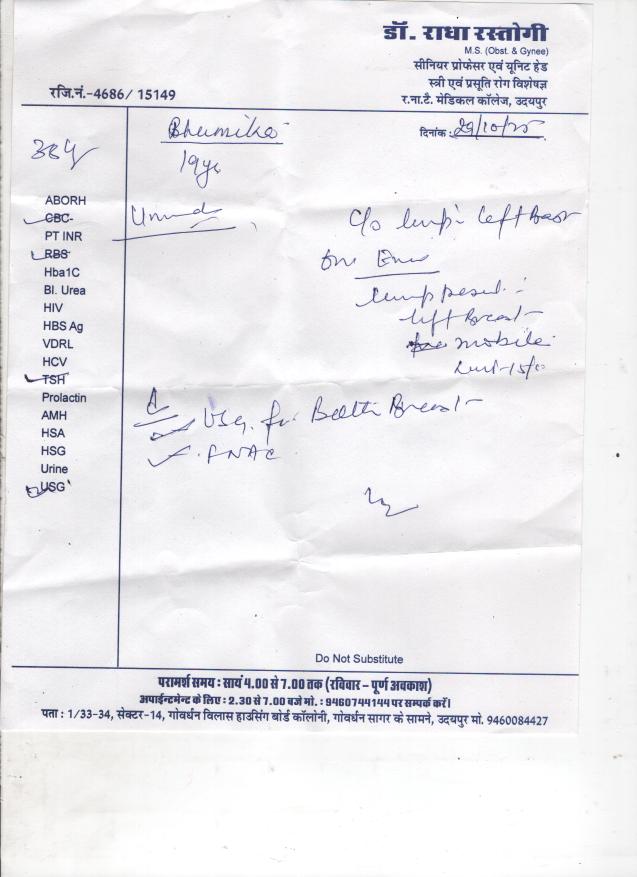 डॉ. राधा रस्तोगी
M.S. (Obst. & Gynee)
सीनियर प्रोफेसर एवं यूनिट हेड
स्त्री एवं प्रसूति रोग विशेषज्ञ
र.ना.टै. मेडिकल कॉलेज, उदयपुर
रजि.नं.-4686/ 15149
दिनांक : 29/10/25
Bhumika
19y
ABORH
CBC
PT INR
RBS
Hba1C
Bl. Urea
HIV
HBS Ag
VDRL
HCV
TSH
Prolactin
AMH
HSA
HSG
Urine
USG
C/o lump left Breast
lump
left Breast
mobile
USG for Breast
FNAC
Do Not Substitute
परामर्श समय : सायं 4.00 से 7.00 तक (रविवार – पूर्ण अवकाश)
अपाईन्टमेन्ट के लिए : 2.30 से 7.00 बजे मो. : 9460744144 पर सम्पर्क करें।
पता : 1/33-34, सेक्टर-14, गोवर्धन विलास हाउसिंग बोर्ड कॉलोनी, गोवर्धन सागर के सामने, उदयपुर मो. 9460084427